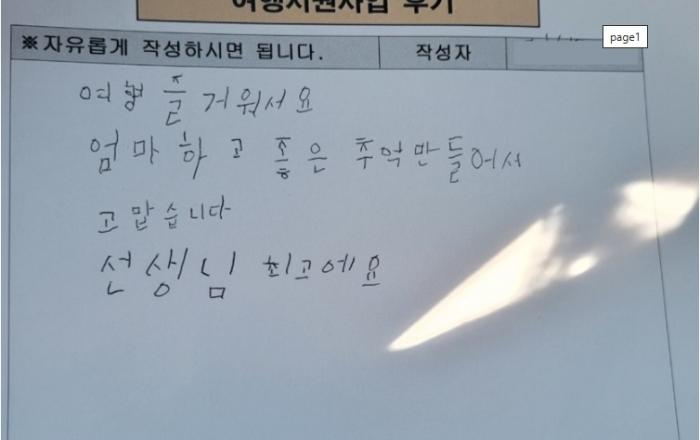 여행지원사업 후기
※자유롭게 작성하시면 됩니다. 작성자
page1
여행 즐거워서요
엄마하고 좋은 추억만들어서
고맙습니다
선생님 최고에요